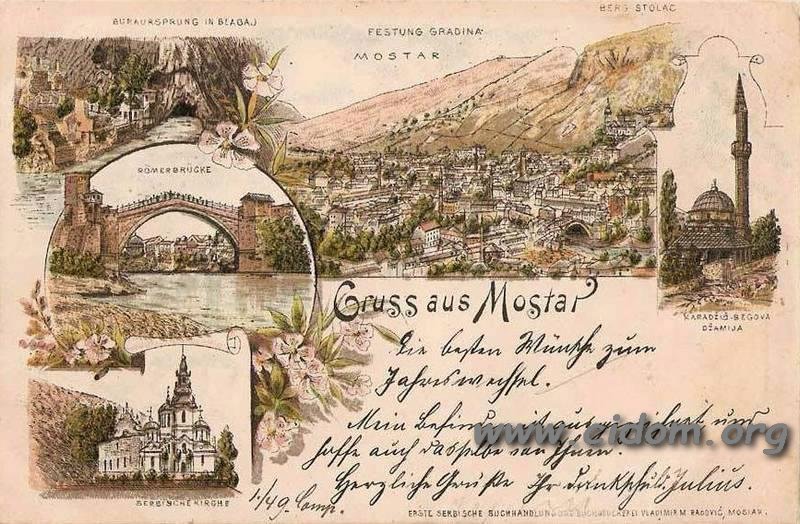 BUNAURSPRUNG IN BLAGAJ
FESTUNG GRADINA
BERG STOLAC
MOSTAR
RÖMERBRÜCKE
KARADŽIĆ-BEGOVA
DŽAMIJA
Gruss aus Mostar
Die besten Wünsche zum
Jahreswechsel.
Mein Befinden ist ausgezeichnet und
hoffe auch dasselbe von Ihnen.
Herzliche Grüße Ihr dankschuld. Julius.
SERBISCHE KIRCHE
1/49. Comp.
ERSTE SERBISCHE BUCHHANDLUNG UND BUCHDRUCKEREI VLADIMIR M. RADOVIĆ, MOSTAR.
www.cidom.org